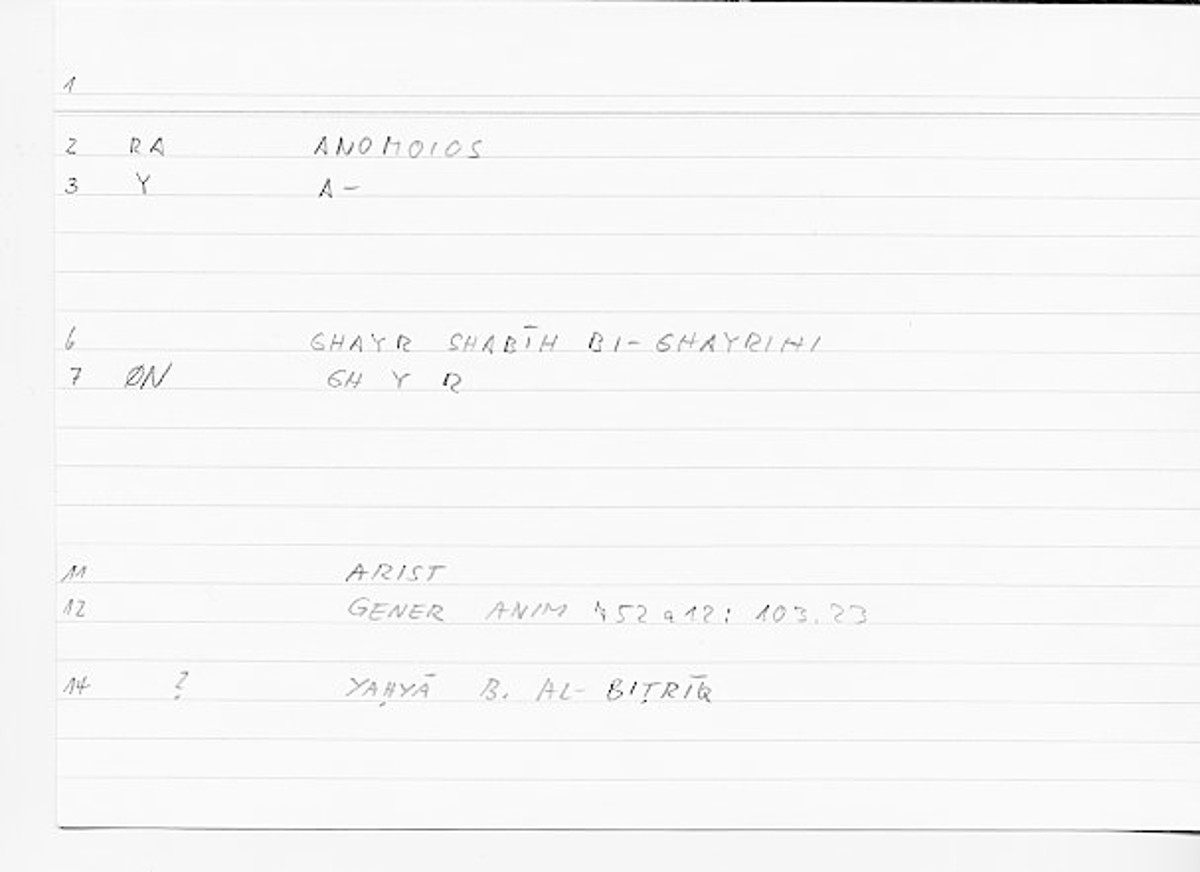 1
2 RA ANOMOIOS
3 Y A-
6 GHAYR SHABĪH BI-GHAYRIHI
7 ØN GH Y R
11 ARIST
12 GENER ANIM 752 a 12: 103.23
14 ? YAḤYĀ B. AL-BIṬRĪQ